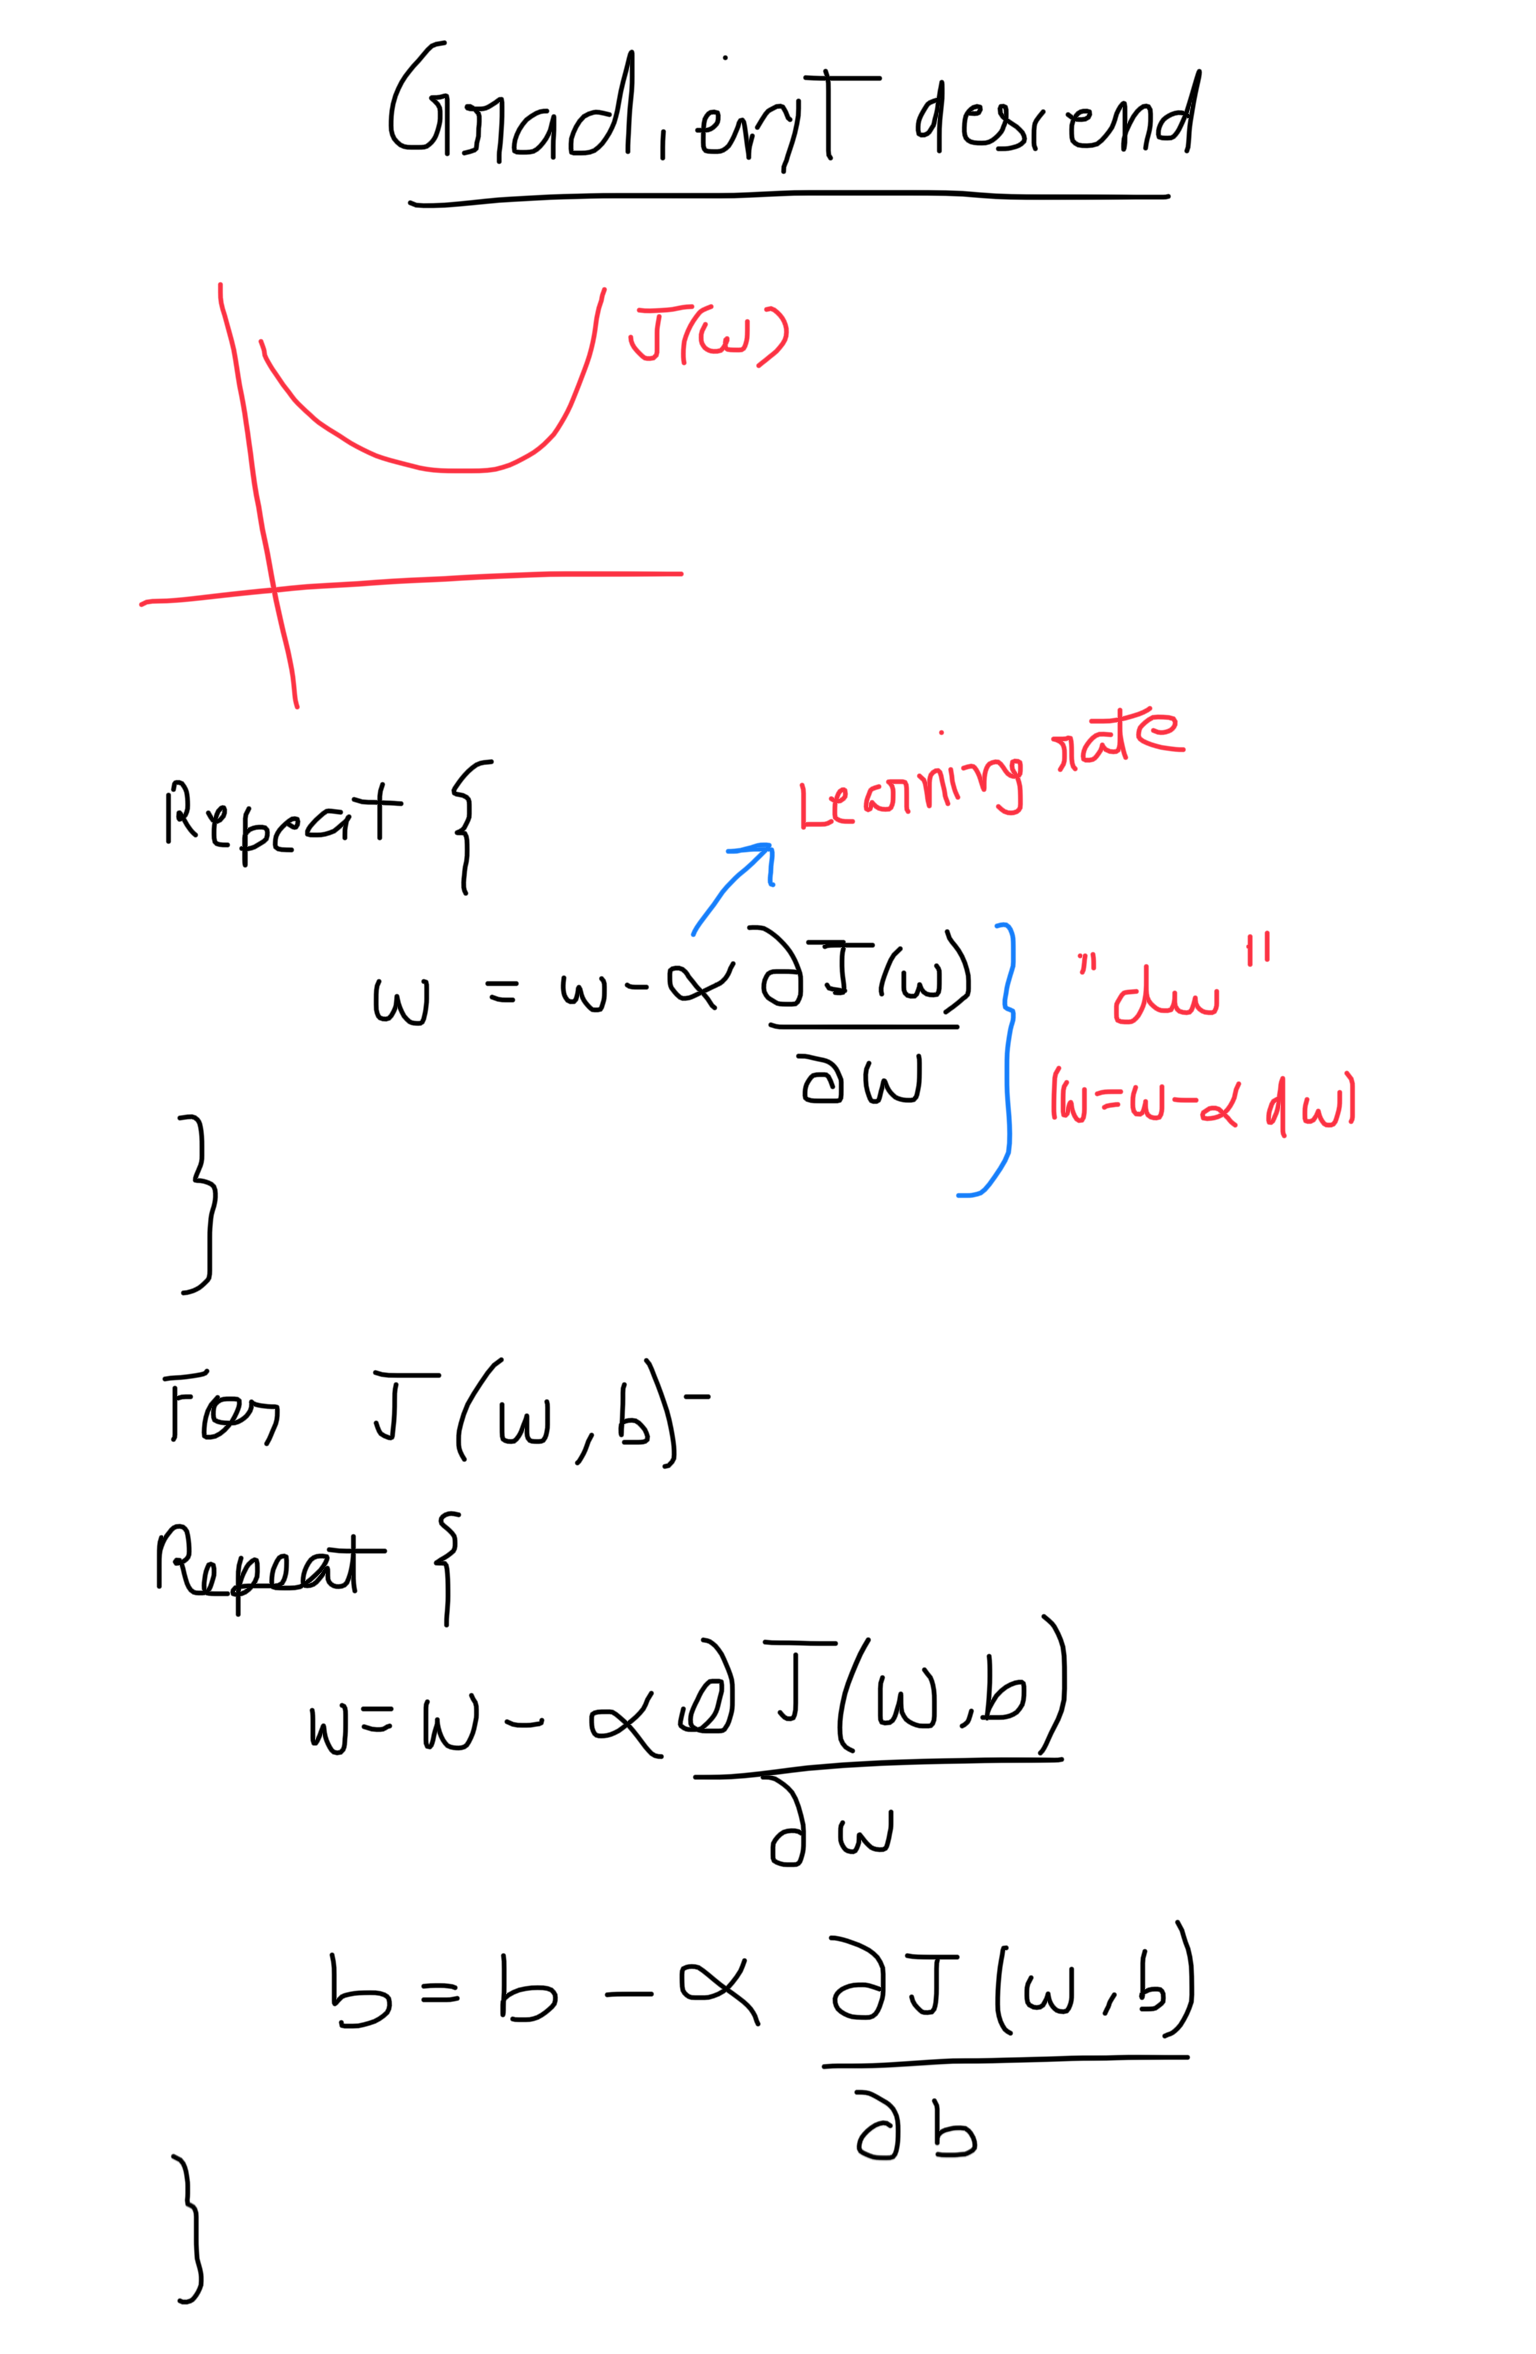 Gradient descend
J(w)
Learning rate
Repeat {
w = w - α ∂J(w)/∂w } "dw"
(w = w - α dw)
}
For, J(w,b) -
Repeat {
w = w - α ∂J(w,b)/∂w
b = b - α ∂J(w,b)/∂b
}